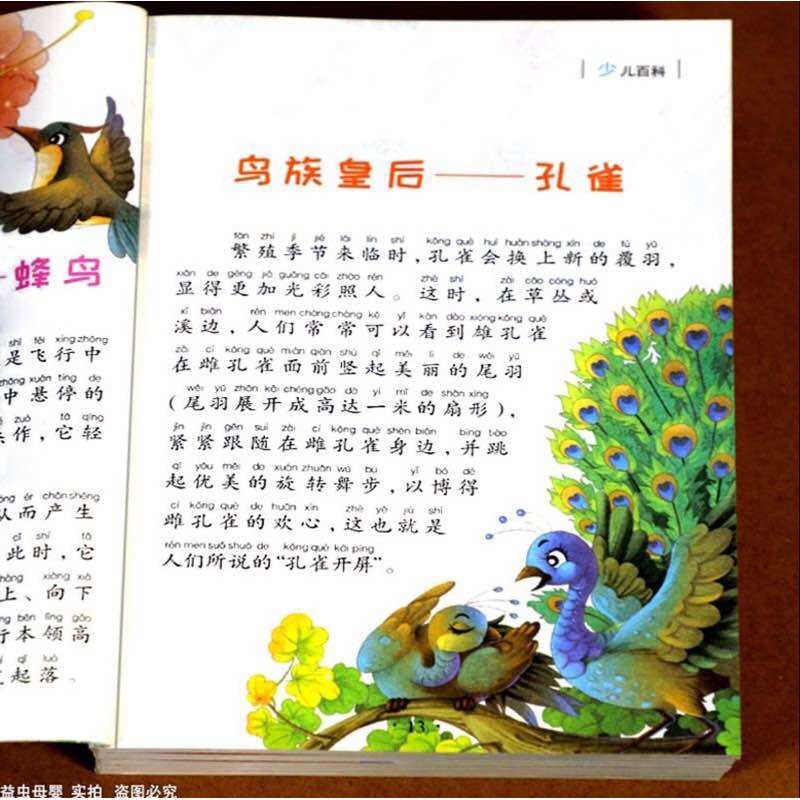 蜂鸟
shì fēi xíng zhōng
是飞行中
zhōng xuán tíng de
中悬停的
zuò tā qīng
作，它轻
ér chǎn shēng
从而产生
cǐ shí tā
此时，它
shàng xiàng xià
上、向下
běn lǐng gāo
行本领高
qǐ luò
起落。
少儿百科
鸟族皇后——孔雀
fán zhí jì jié lái lín shí kǒng què huì huàn shàng xīn de fù yǔ
繁殖季节来临时，孔雀会换上新的覆羽，
xiǎn de gèng jiā guāng cǎi zhào rén zhè shí zài cǎo cóng huò
显得更加光彩照人。这时，在草丛或
xī biān rén men cháng cháng kě yǐ kàn dào xióng kǒng què
溪边，人们常常可以看到雄孔雀
zài cí kǒng què miàn qián shù qǐ měi lì de wěi yǔ
在雌孔雀面前竖起美丽的尾羽
wěi yǔ zhǎn kāi chéng gāo dá yì mǐ de shàn xíng
（尾羽展开成高达一米的扇形），
jǐn jǐn gēn suí zài cí kǒng què shēn biān bìng tiào
紧紧跟随在雌孔雀身边，并跳
qǐ yōu měi de xuán zhuǎn wǔ bù yǐ bó dé
起优美的旋转舞步，以博得
cí kǒng què de huān xīn zhè yě jiù shì
雌孔雀的欢心，这也就是
rén men suǒ shuō de kǒng què kāi píng
人们所说的“孔雀开屏”。
·13·
益虫母婴 实拍 盗图必究